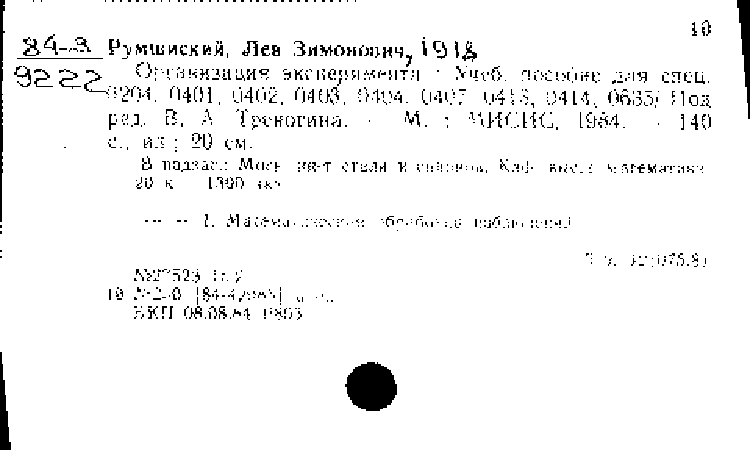 10
84-3 Румшиский, Лев Зимонович, 1918
9222 Организация эксперимента : Учеб. пособие для спец.
0204, 0401, 0402, 0403, 0404, 0407, 0413, 0414, 0633/ Под
ред. В. А. Треногина. - М. : МИСИС, 1984. - 140
с., ил ; 20 см.
В надзаг.: Моск. ин-т стали и сплавов, Каф. высш. математики
20 к. 1300 экз.
— — 1. Математическая обработка наблюдений
№27523
10
ВКП 08.08.84